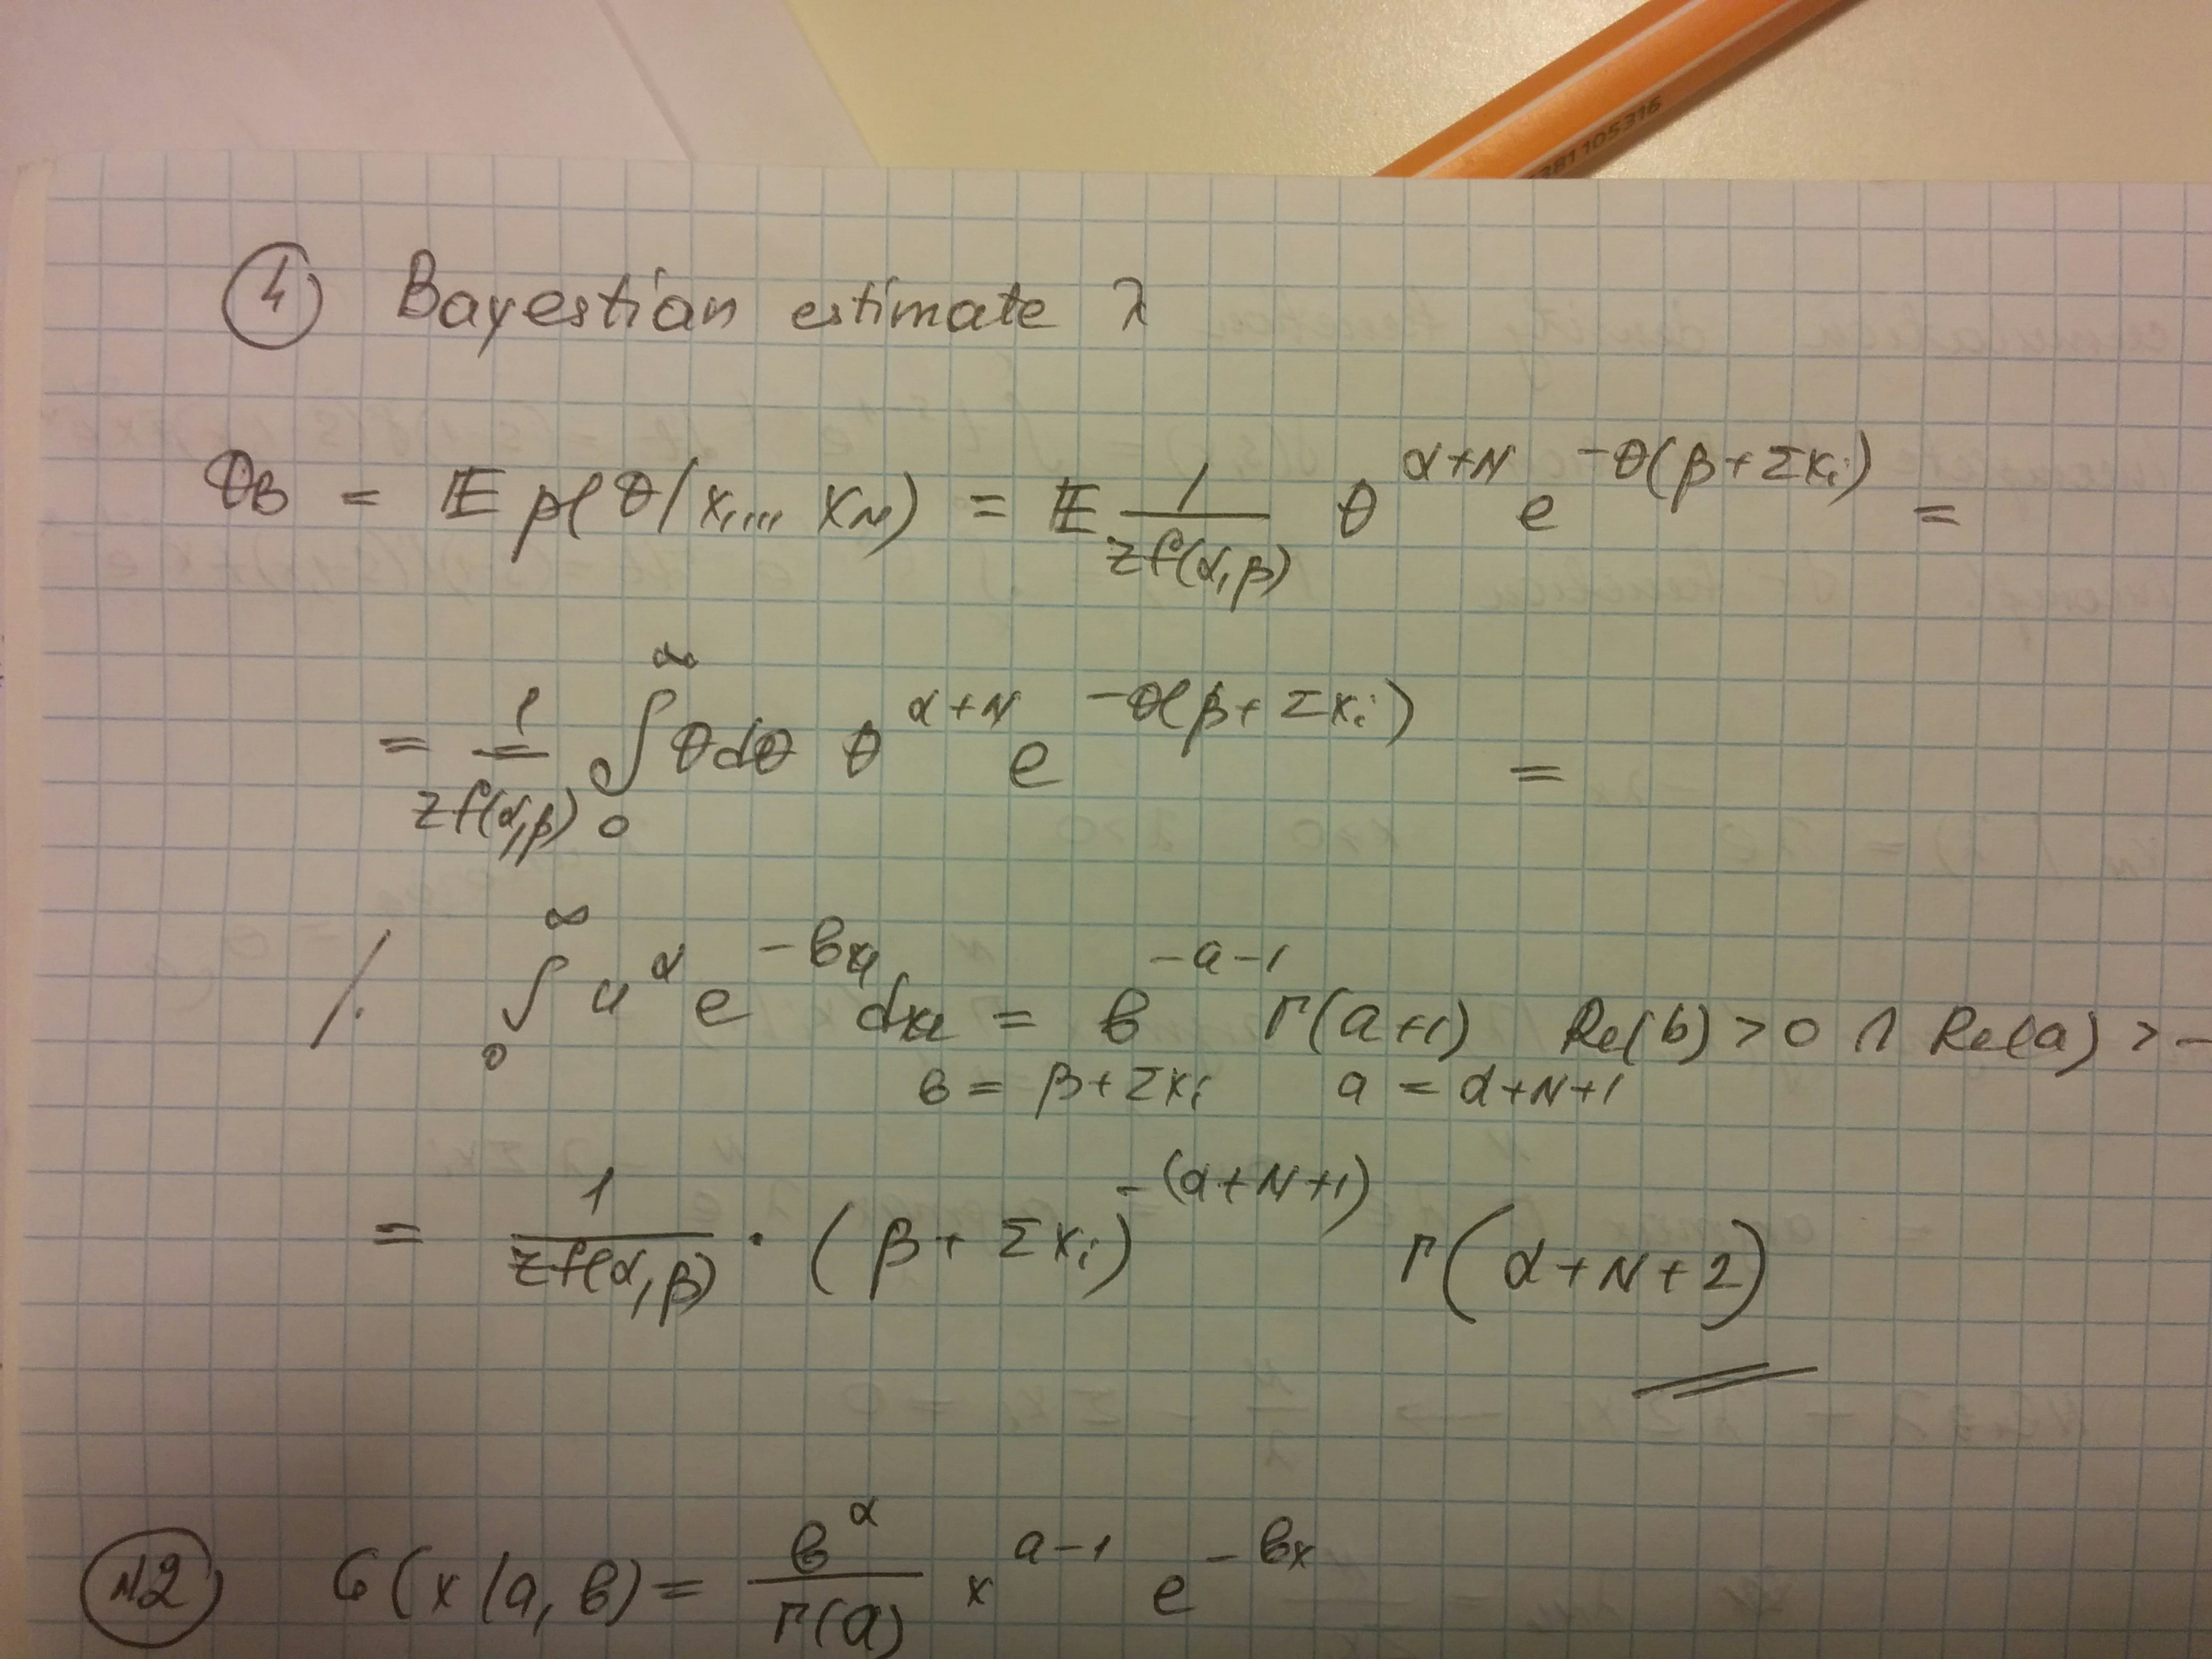 ④ Bayestian estimate λ
θB = E p(θ/x1,... xN) = E 1/zf(α,β) θ^(α+N) e^(-θ(β+Σxi)) =
= 1/zf(α,β) ∫0^∞ θdθ θ^(α+N) e^(-θ(β+Σxi)) =
/. ∫0^∞ u^α e^(-bu) du = b^(-a-1) Γ(a+1) Re(b) > 0 ∧ Re(a) > -
b = β+Σxi a = α+N+1
= 1/zf(α,β) · (β+Σxi)^(-(α+N+1)) Γ(α+N+2)
N2 G(x/a,b) = b^α/Γ(a) x^(a-1) e^(-bx)
381105316